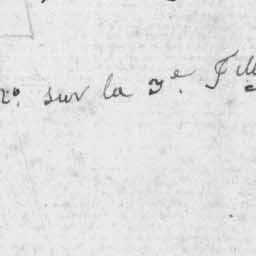 2º. sur la 3e. Fill